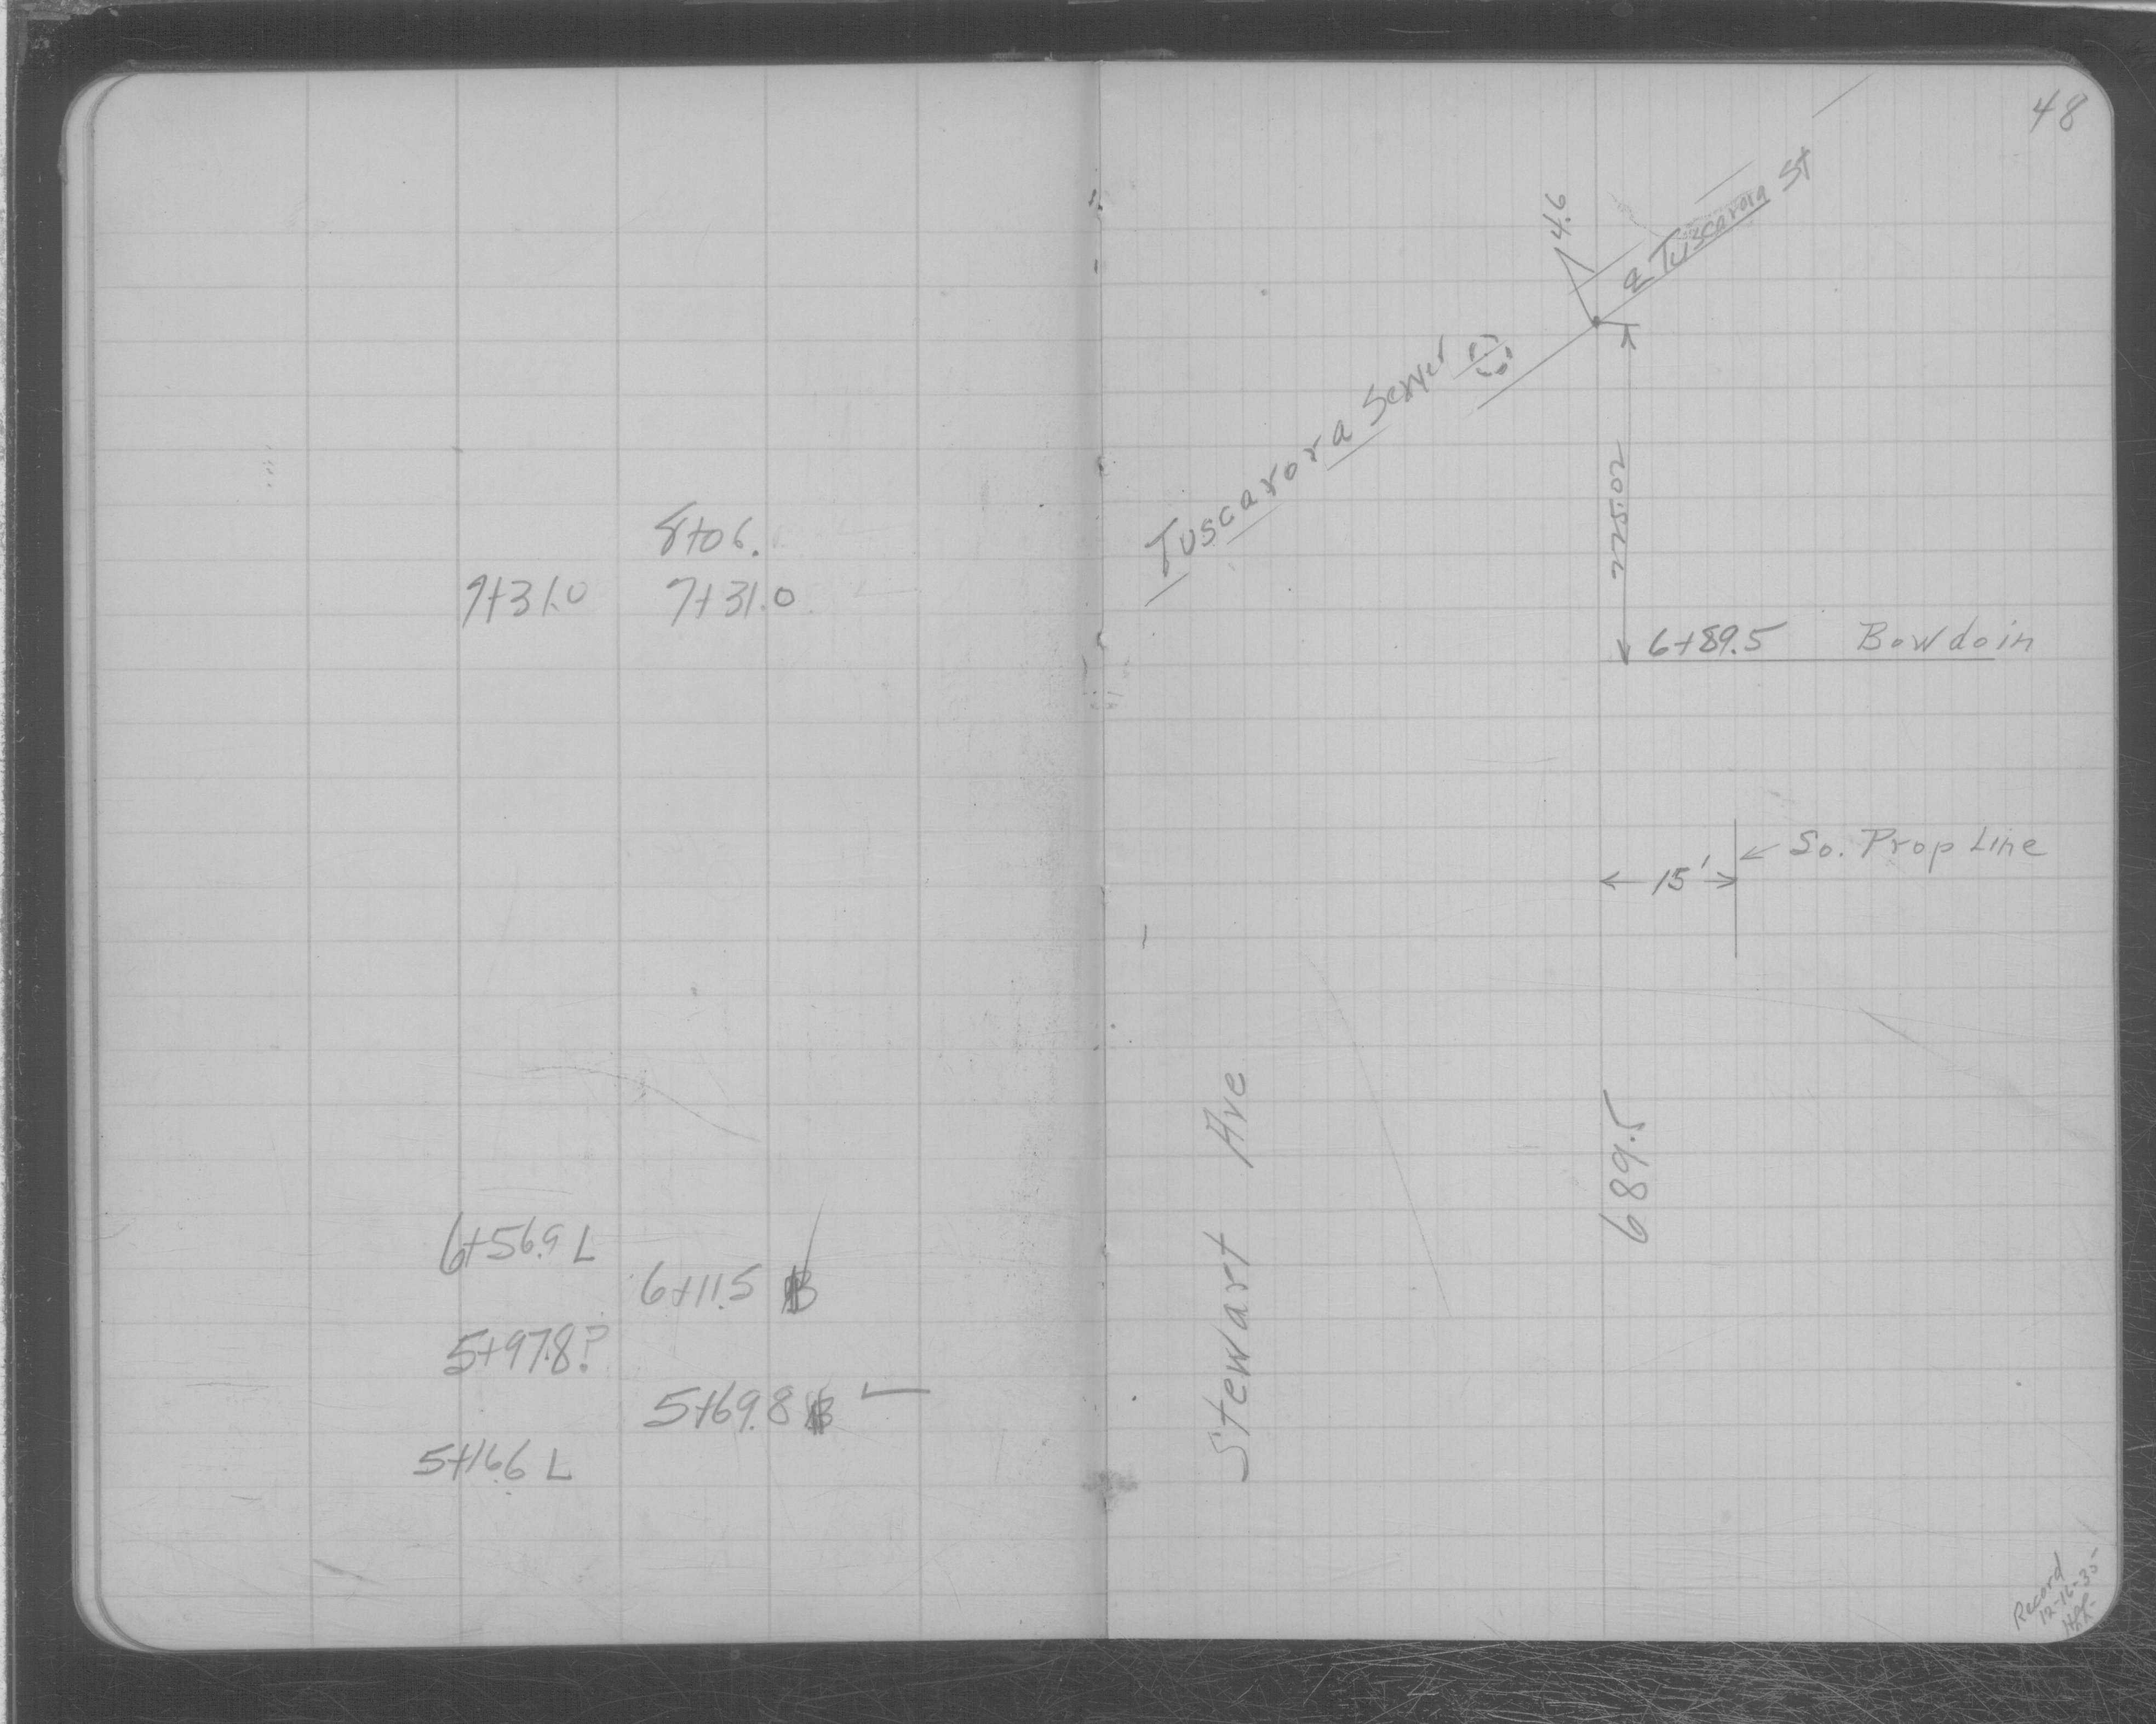 8+06.
7+31.0 7+31.0
6+56.9 L
6+11.5 B
5+97.8?
5+69.8 B
5+16.6 L
48
4.6
℄ Tuscarora St
Tuscarora Sewer
225.02
6+89.5 Bowdoin
So. Prop Line
15'
689.5
Stewart Ave
Record
12-16-35